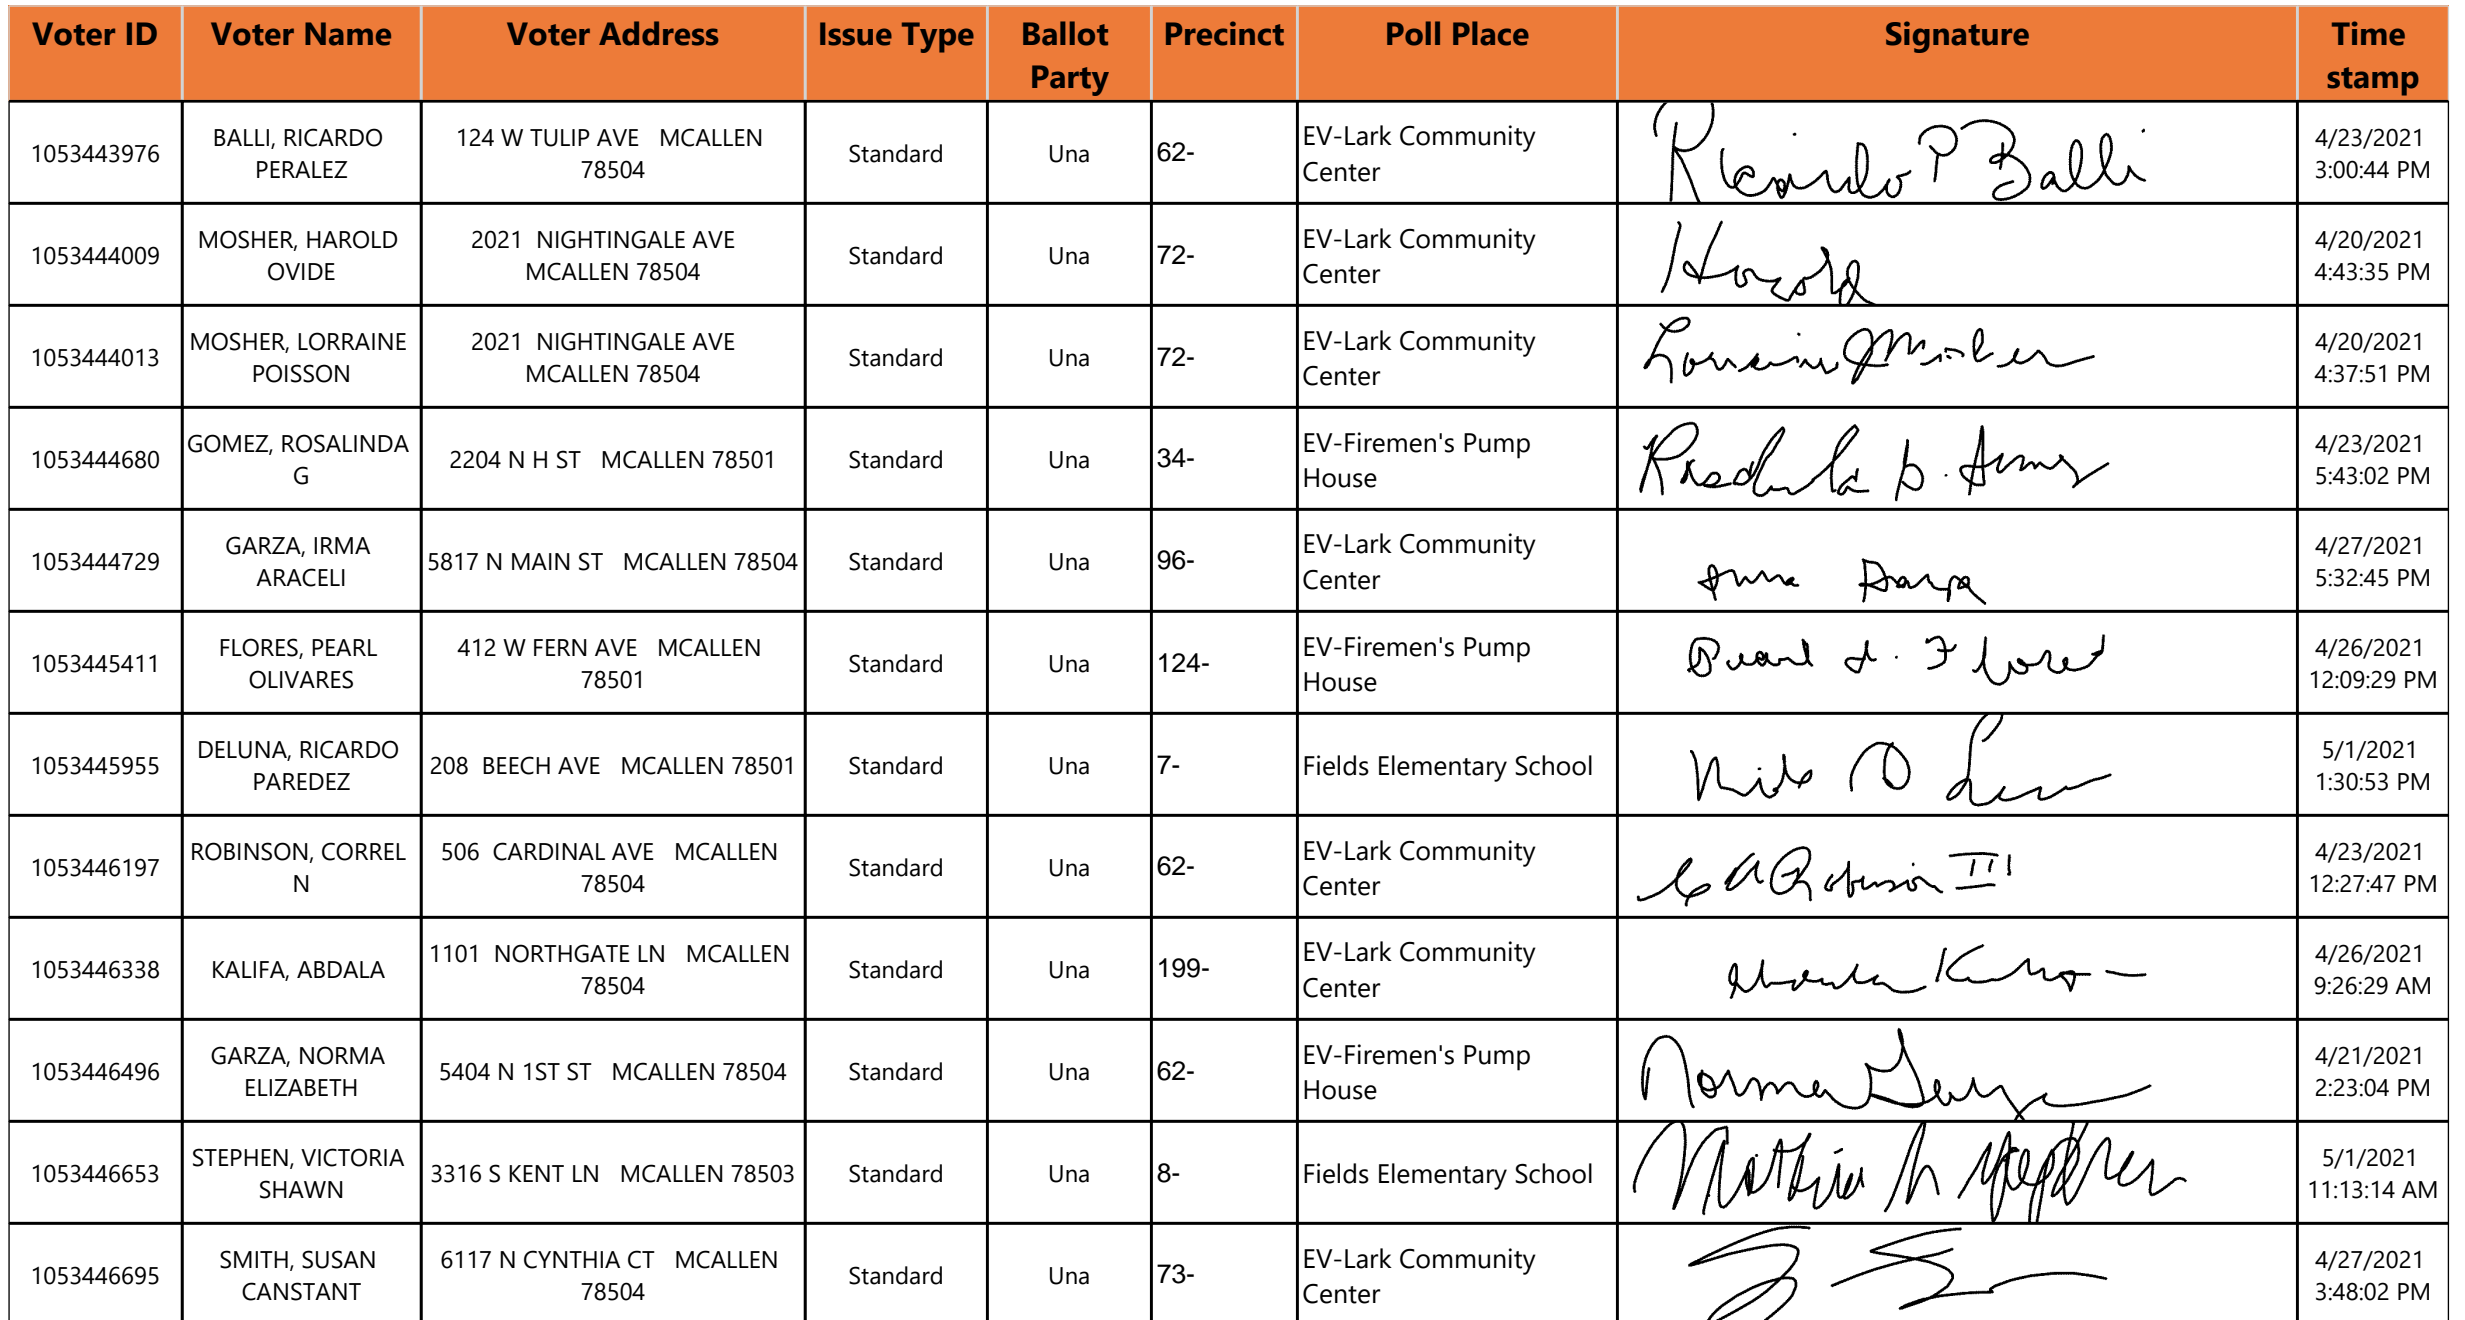 Voter ID Voter Name Voter Address Issue Type Ballot Party Precinct Poll Place Signature Time stamp
1053443976 BALLI, RICARDO PERALEZ 124 W TULIP AVE MCALLEN 78504 Standard Una 62- EV-Lark Community Center Ricardo P Balli 4/23/2021 3:00:44 PM
1053444009 MOSHER, HAROLD OVIDE 2021 NIGHTINGALE AVE MCALLEN 78504 Standard Una 72- EV-Lark Community Center Harold 4/20/2021 4:43:35 PM
1053444013 MOSHER, LORRAINE POISSON 2021 NIGHTINGALE AVE MCALLEN 78504 Standard Una 72- EV-Lark Community Center Lorraine Mosher 4/20/2021 4:37:51 PM
1053444680 GOMEZ, ROSALINDA G 2204 N H ST MCALLEN 78501 Standard Una 34- EV-Firemen's Pump House 4/23/2021 5:43:02 PM
1053444729 GARZA, IRMA ARACELI 5817 N MAIN ST MCALLEN 78504 Standard Una 96- EV-Lark Community Center Irma Garza 4/27/2021 5:32:45 PM
1053445411 FLORES, PEARL OLIVARES 412 W FERN AVE MCALLEN 78501 Standard Una 124- EV-Firemen's Pump House Pearl O. Flores 4/26/2021 12:09:29 PM
1053445955 DELUNA, RICARDO PAREDEZ 208 BEECH AVE MCALLEN 78501 Standard Una 7- Fields Elementary School 5/1/2021 1:30:53 PM
1053446197 ROBINSON, CORREL N 506 CARDINAL AVE MCALLEN 78504 Standard Una 62- EV-Lark Community Center Robinson III 4/23/2021 12:27:47 PM
1053446338 KALIFA, ABDALA 1101 NORTHGATE LN MCALLEN 78504 Standard Una 199- EV-Lark Community Center 4/26/2021 9:26:29 AM
1053446496 GARZA, NORMA ELIZABETH 5404 N 1ST ST MCALLEN 78504 Standard Una 62- EV-Firemen's Pump House Norma Garza 4/21/2021 2:23:04 PM
1053446653 STEPHEN, VICTORIA SHAWN 3316 S KENT LN MCALLEN 78503 Standard Una 8- Fields Elementary School 5/1/2021 11:13:14 AM
1053446695 SMITH, SUSAN CANSTANT 6117 N CYNTHIA CT MCALLEN 78504 Standard Una 73- EV-Lark Community Center 4/27/2021 3:48:02 PM